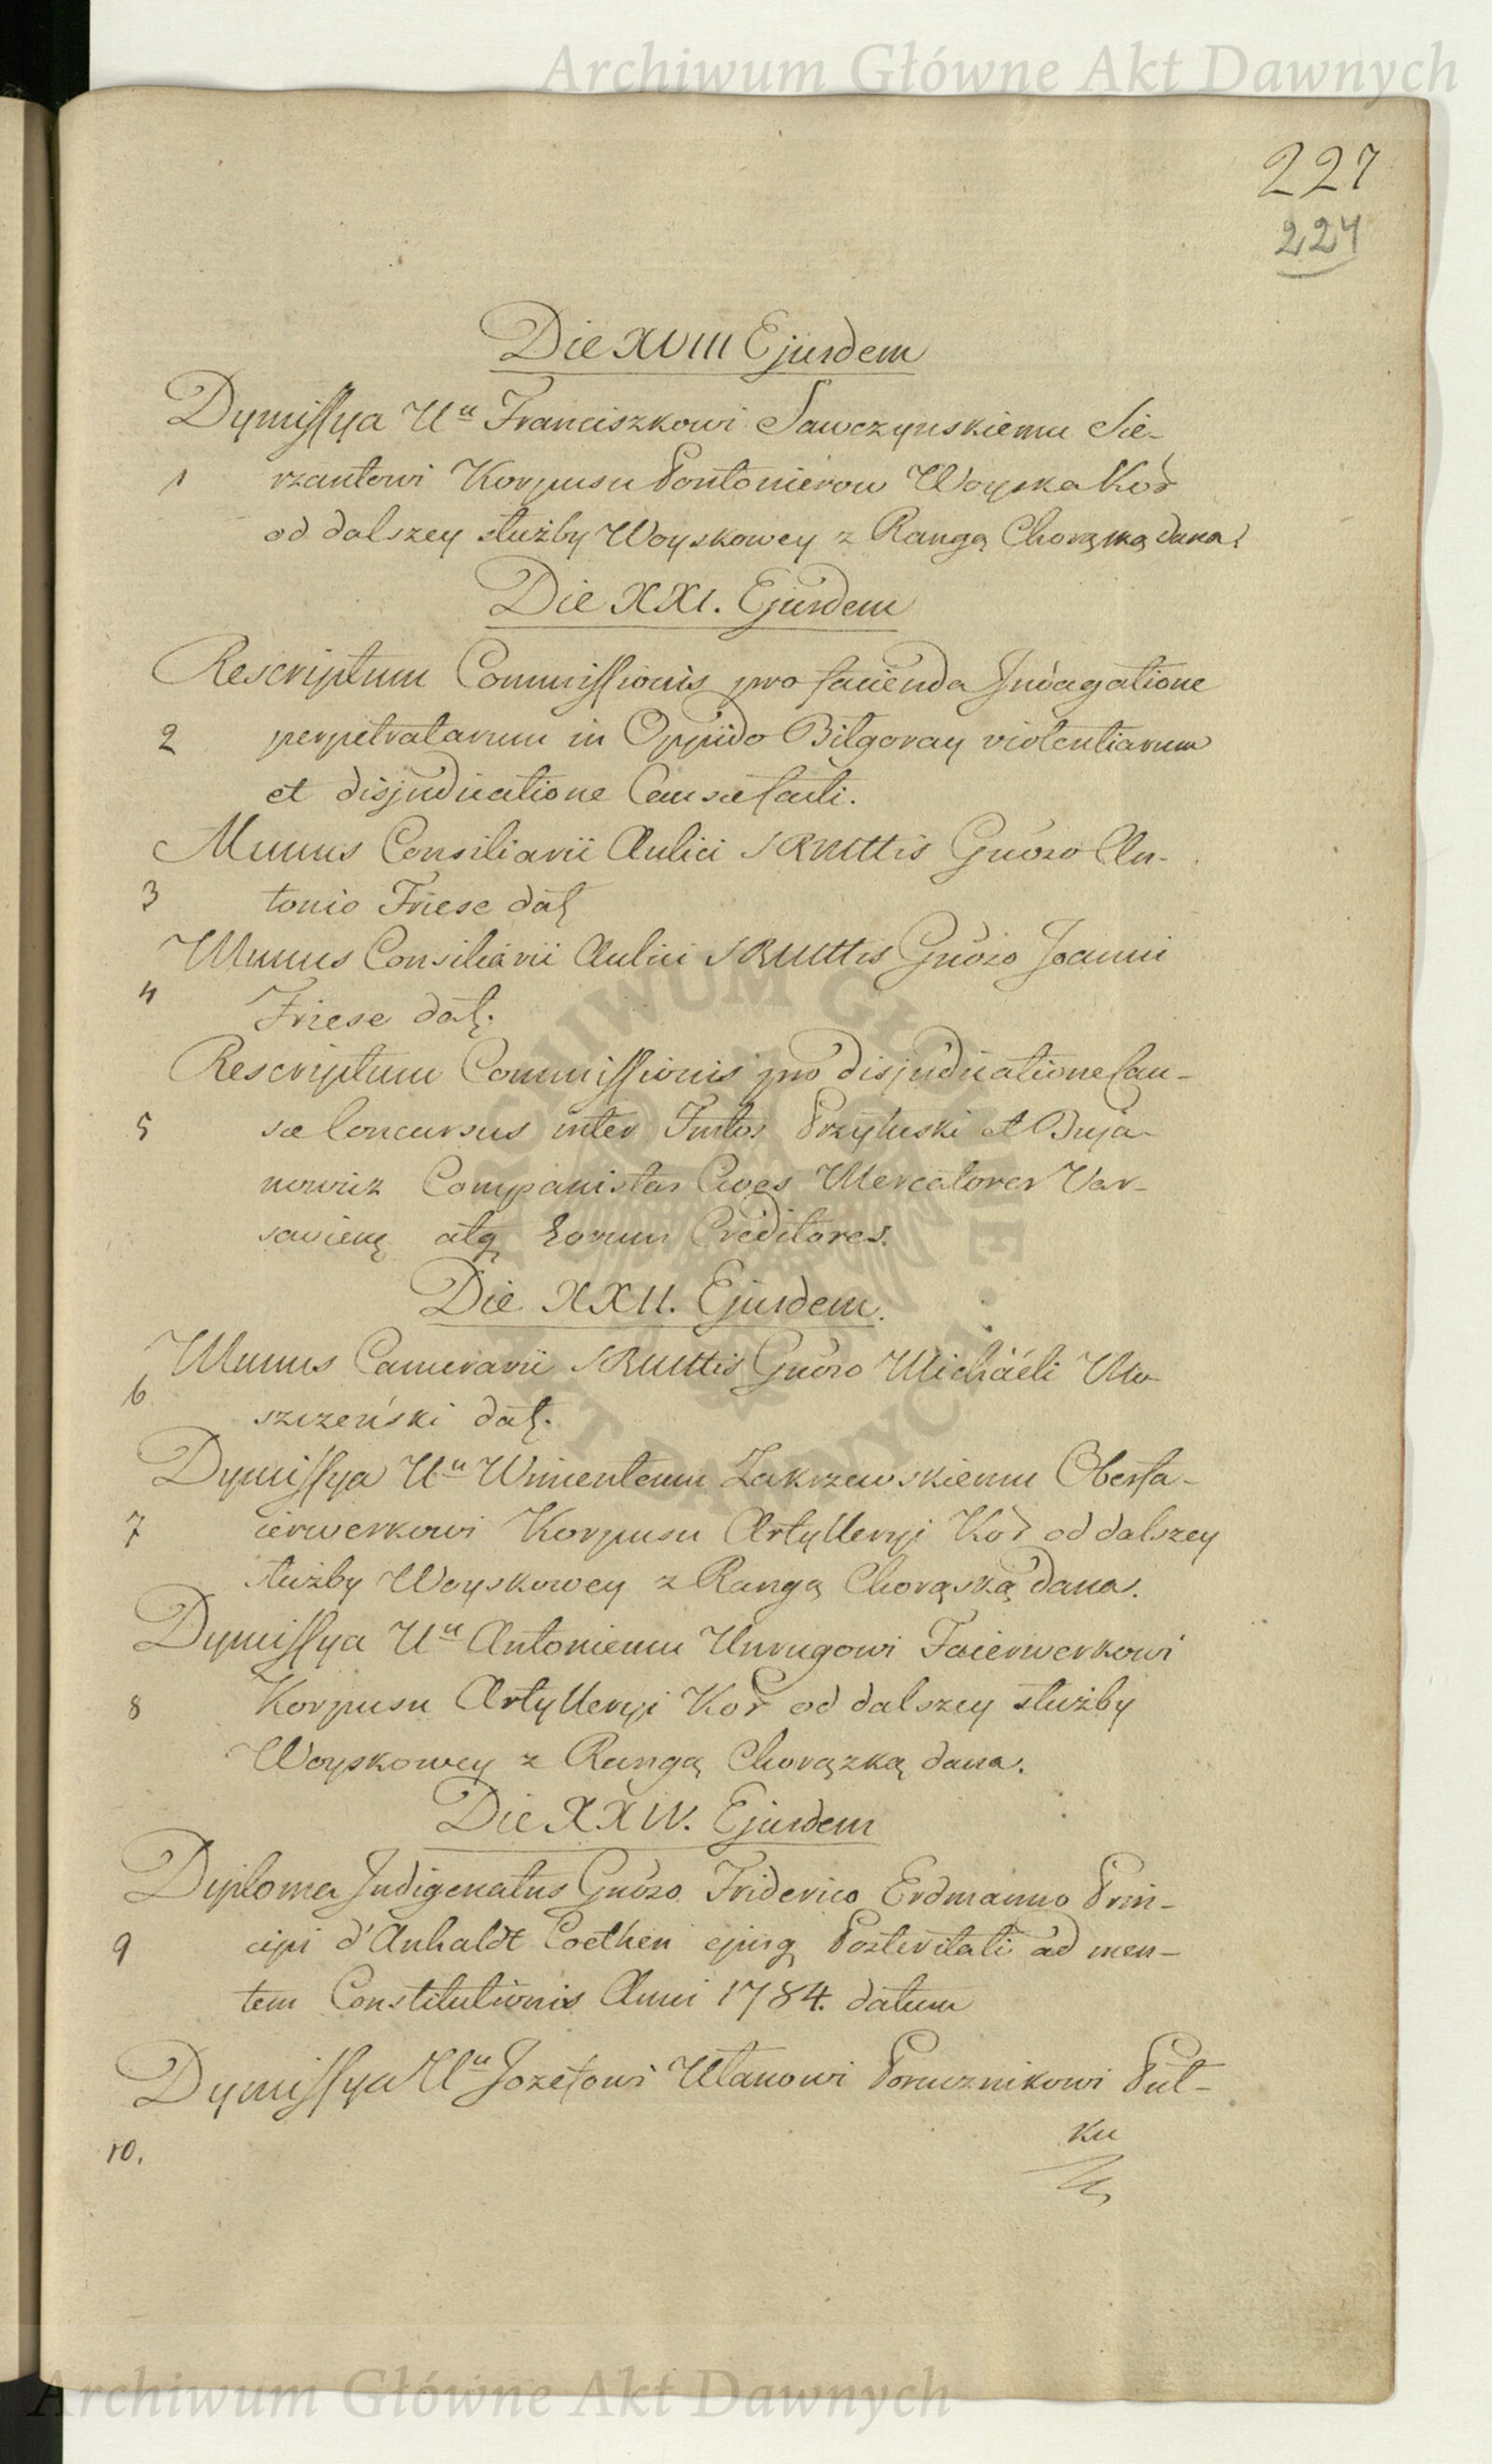 Archiwum Główne Akt Dawnych
227
224
Die XVIII Ejusdem
Dymissya Uu Franciszkowi Sawczynskiemu Sie-
1 rzantowi Korpusu Pontonierow Woyska Kor
od dalszey służby Woyskowey z Rangą Chorąską dana.
Die XXI. Ejusdem
Rescriptum Commissionis pro facienda Indagatione
2 perpetratarum in Oppido Biłgoray violentiarum
et disjudicatione Causæ facti.
Munus Consiliarii Aulici SRMttis Gnoso An-
3 tonio Friese dat
Munus Consiliarii Aulici SRMttis Gnoso Joanni
4 Friese dat.
Rescriptum Commissionis pro disjudicatione Cau-
5 sæ Concursus inter Fmtos Przyłuski et Buja-
nowicz Companistas Cives Mercatores Var-
savien atq Eorum Creditores.
Die XXII. Ejusdem.
Munus Camerarii SRMttis Gnoso Michaeli Mo-
6 szczeński dat.
Dymissya Uu Wincentemu Zakrzewskiemu Oberfa-
7 ierwerkowi Korpusu Artylleryi Kor od dalszey
służby Woyskowey z Rangą Chorąską dana.
Dymissya Uu Antoniemu Unrugowi Faierwerkowi
8 Korpusu Artylleryi Kor od dalszey służby
Woyskowey z Rangą Chorązką dana.
Die XXIV. Ejusdem
Diploma Indigenatus Gnoso Friderico Erdmanno Prin-
9 cipi d'Anhaldt Coethen ejusq Posteritati ad men-
tem Constitutionis Anni 1784. datum
Dymissya Uu Jozefowi Ułanowi Porucznikowi Puł-
10.
ku
Archiwum Główne Akt Dawnych